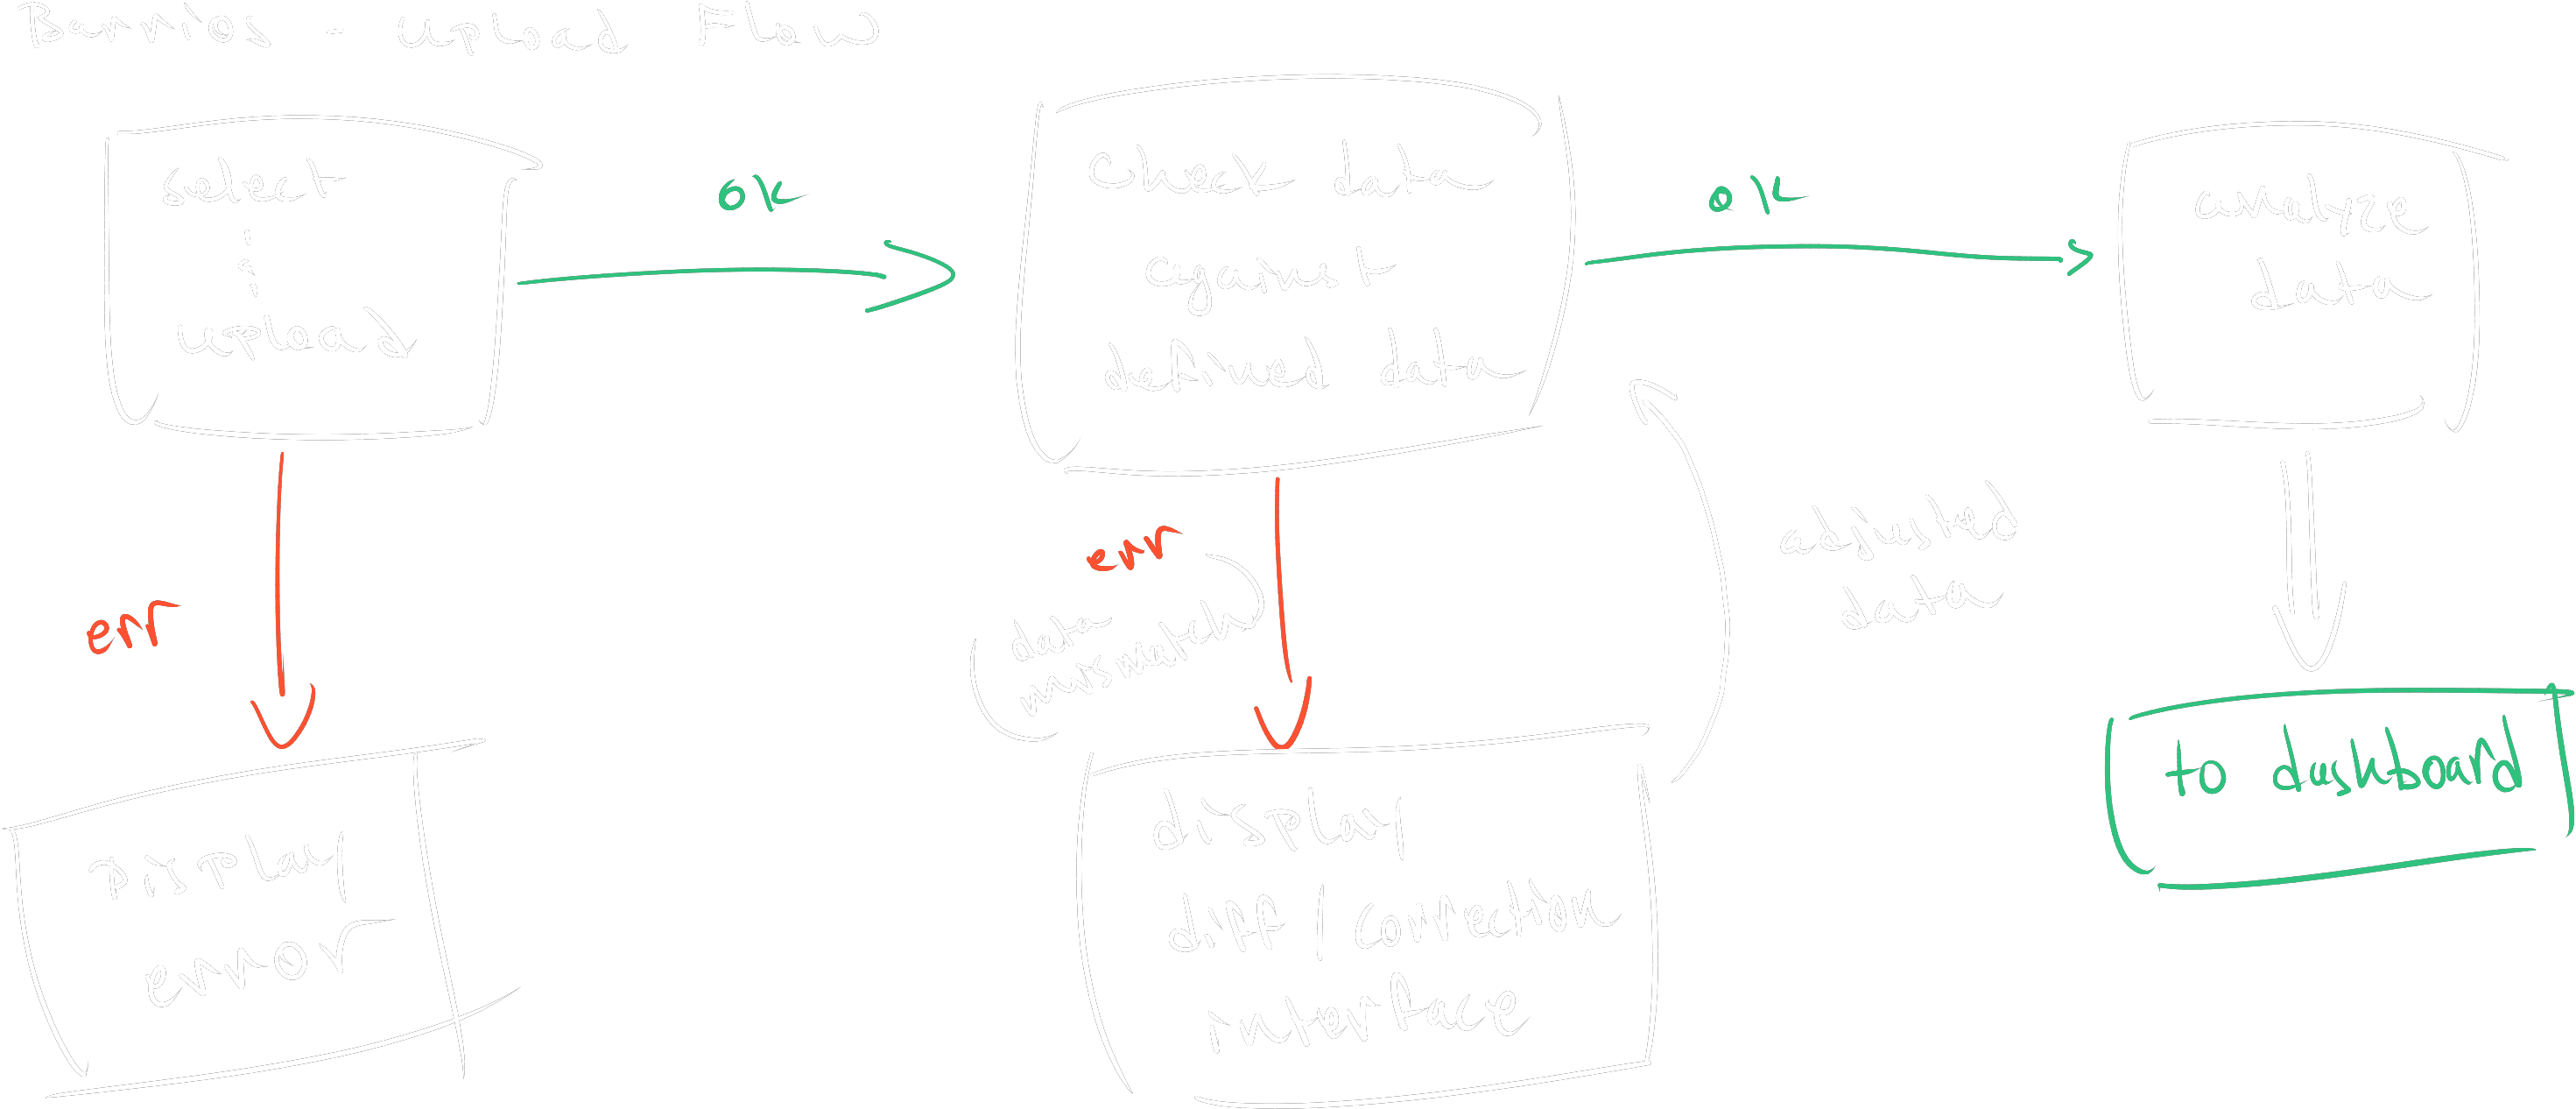 Barrios - Upload Flow
select
&
upload
ok
check data
against
defined data
ok
analyze
data
err
err
data
mismatch
adjusted
data
Display
error
display
diff / correction
interface
to dashboard